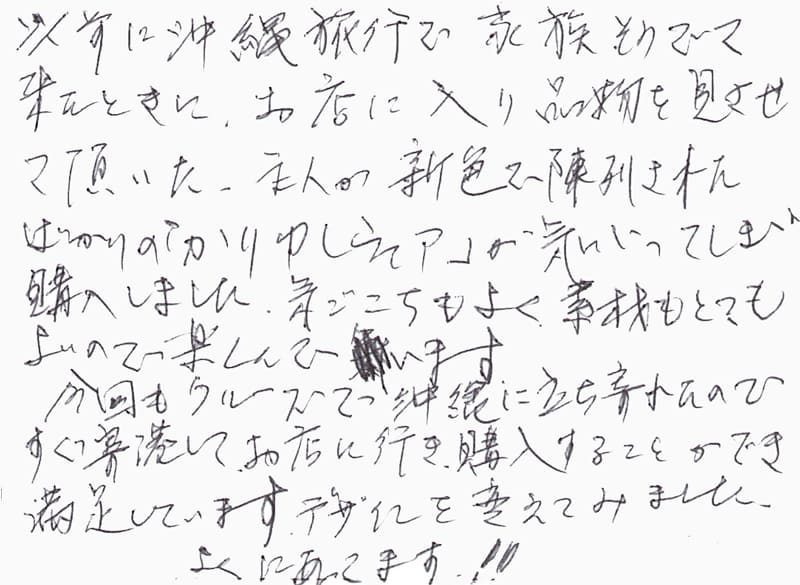 以前に沖縄旅行で家族そろって
来たときに、お店に入り品物を見させ
て頂いた。主人が新色で陳列された
ばかりの「かりゆしウェア」が気にいってしまい
購入しました。着ごこちもよく、素材もとても
よいので楽しんでいます
今回もクルーズで沖縄に立ち寄れたので
すぐ寄港して、お店に行き、購入することができ
満足しています。デザインを変えてみました。
よくにあってます!!